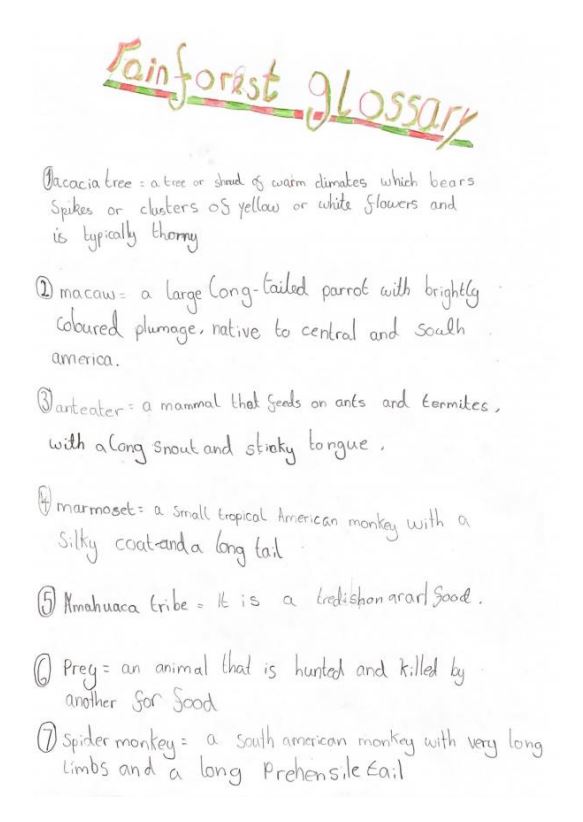 rainforest glossary
① acacia tree = a tree or shrud of warm climates which bears
spikes or clusters of yellow or white flowers and
is typically thorny
② macaw = a large long-tailed parrot with brightly
coloured plumage, native to central and south
america.
③ anteater = a mammal that feeds on ants and termites,
with a long snout and sticky tongue.
④ marmoset = a small tropical American monkey with a
silky coat and a long tail
⑤ Amahuaca tribe = It is a tredishon food.
⑥ Prey = an animal that is hunted and killed by
another for food
⑦ Spider monkey = a south american monkey with very long
limbs and a long Prehensile tail